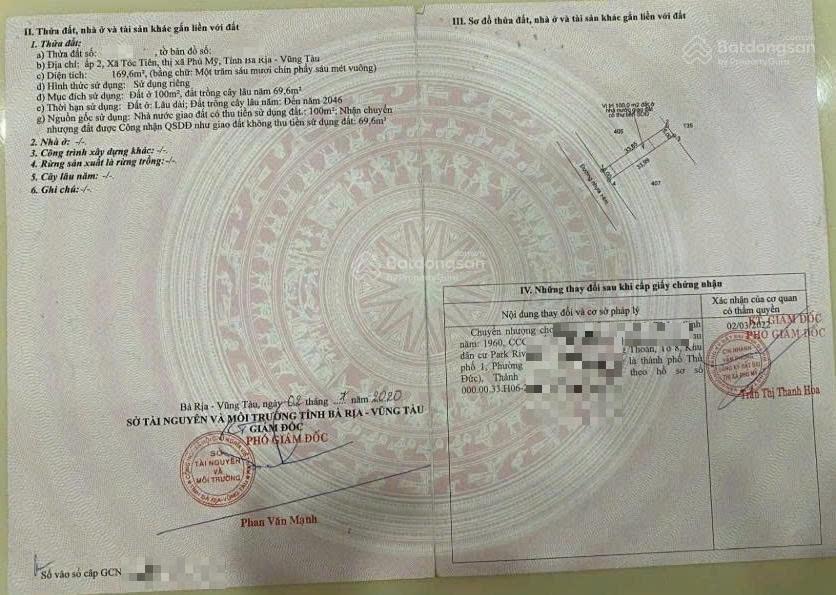 II. Thửa đất, nhà ở và tài sản khác gắn liền với đất
1. Thửa đất:
a) Thửa đất số: , tờ bản đồ số:
b) Địa chỉ: ấp 2, Xã Tóc Tiên, thị xã Phú Mỹ, Tỉnh Bà Rịa - Vũng Tàu
c) Diện tích: 169,6m², (bằng chữ: Một trăm sáu mươi chín phẩy sáu mét vuông)
d) Hình thức sử dụng: Sử dụng riêng
đ) Mục đích sử dụng: Đất ở 100m², đất trồng cây lâu năm 69,6m²
e) Thời hạn sử dụng: Đất ở: Lâu dài; Đất trồng cây lâu năm: Đến năm 2046
g) Nguồn gốc sử dụng: Nhà nước giao đất có thu tiền sử dụng đất.: 100m²; Nhận chuyển
nhượng đất được Công nhận QSDĐ như giao đất không thu tiền sử dụng đất: 69,6m²
2. Nhà ở: -/-
3. Công trình xây dựng khác:-/-
4. Rừng sản xuất là rừng trồng:-/-
5. Cây lâu năm: -/-
6. Ghi chú:-/-
Bà Rịa - Vũng Tàu, ngày 02 tháng 7 năm 2020
SỞ TÀI NGUYÊN VÀ MÔI TRƯỜNG TỈNH BÀ RỊA - VŨNG TÀU
KT GIÁM ĐỐC
PHÓ GIÁM ĐỐC
SỞ
TÀI NGUYÊN
VÀ
MÔI TRƯỜNG
TỈNH BÀ RỊA-VŨNG TÀU
Phan Văn Mạnh
Số vào sổ cấp GCN
III. Sơ đồ thửa đất, nhà ở và tài sản khác gắn liền với đất
Batdongsan
by PropertyGuru
Vị trí 100,0 m2 đất ở
nhà nước giao đất
có thu tiền SDĐ
406
735
33.85
5.00
33.99
5.00
407
Đường nhựa
Batdongsan
by PropertyGuru
IV. Những thay đổi sau khi cấp giấy chứng nhận
Nội dung thay đổi và cơ sở pháp lý
Xác nhận của cơ quan
có thẩm quyền
Chuyển nhượng cho
năm: 1960, CCC
dân cư Park Riv Thoan, Tổ 8, Khu
phố 1, Phường là thành phố Thủ
Đức), Thành theo hồ sơ số
000.00.33.H06-2
02/03/2022
KT. GIÁM ĐỐC
PHÓ GIÁM ĐỐC
CHI NHÁNH
VĂN PHÒNG
ĐĂNG KÝ ĐẤT ĐAI
THỊ XÃ PHÚ MỸ
Trần Thị Thanh Hoa